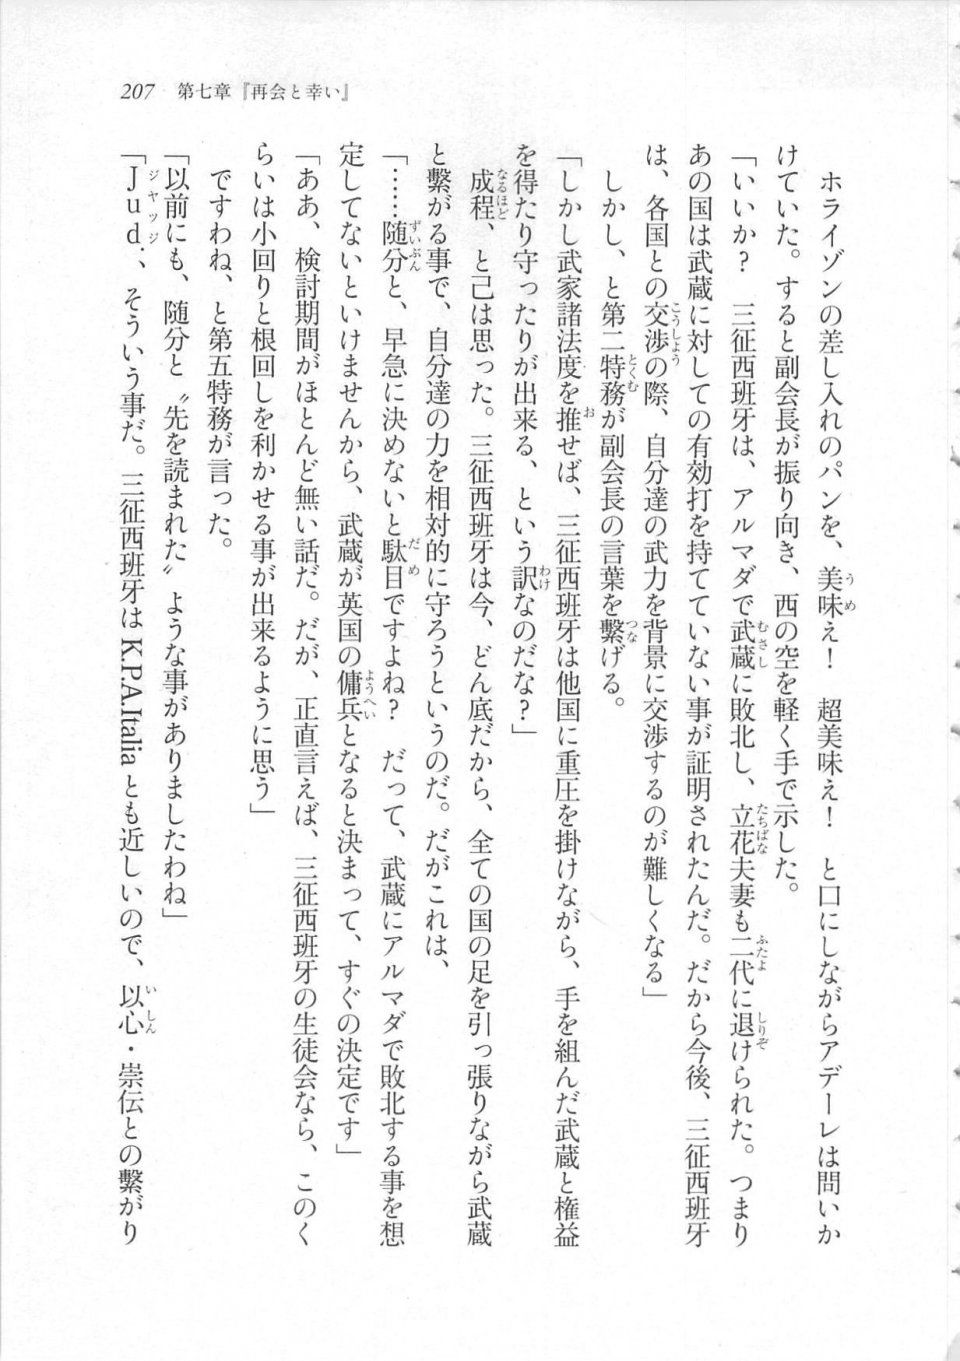 207 第七章『再会と幸い』
　ホライゾンの差し入れのパンを、美味え！　超美味え！　と口にしながらアデーレは問いか
けていた。すると副会長が振り向き、西の空を軽く手で示した。
「いいか？　三征西班牙は、アルマダで武蔵に敗北し、立花夫妻も二代に退けられた。つまり
あの国は武蔵に対しての有効打を持てていない事が証明されたんだ。だから今後、三征西班牙
は、各国との交渉の際、自分達の武力を背景に交渉するのが難しくなる」
　しかし、と第二特務が副会長の言葉を繋げる。
「しかし武家諸法度を推せば、三征西班牙は他国に重圧を掛けながら、手を組んだ武蔵と権益
を得たり守ったりが出来る、という訳なのだな？」
　成程、と己は思った。三征西班牙は今、どん底だから、全ての国の足を引っ張りながら武蔵
と繋がる事で、自分達の力を相対的に守ろうというのだ。だがこれは、
「……随分と、早急に決めないと駄目ですよね？　だって、武蔵にアルマダで敗北する事を想
定してないといけませんから、武蔵が英国の傭兵となると決まって、すぐの決定です」
「ああ、検討期間がほとんど無い話だ。だが、正直言えば、三征西班牙の生徒会なら、このく
らいは小回りと根回しを利かせる事が出来るように思う」
　ですわね、と第五特務が言った。
「以前にも、随分と〝先を読まれた〟ような事がありましたわね」
「Ｊｕｄ.、そういう事だ。三征西班牙は K.P.A.Italia とも近しいので、以心・崇伝との繋がり